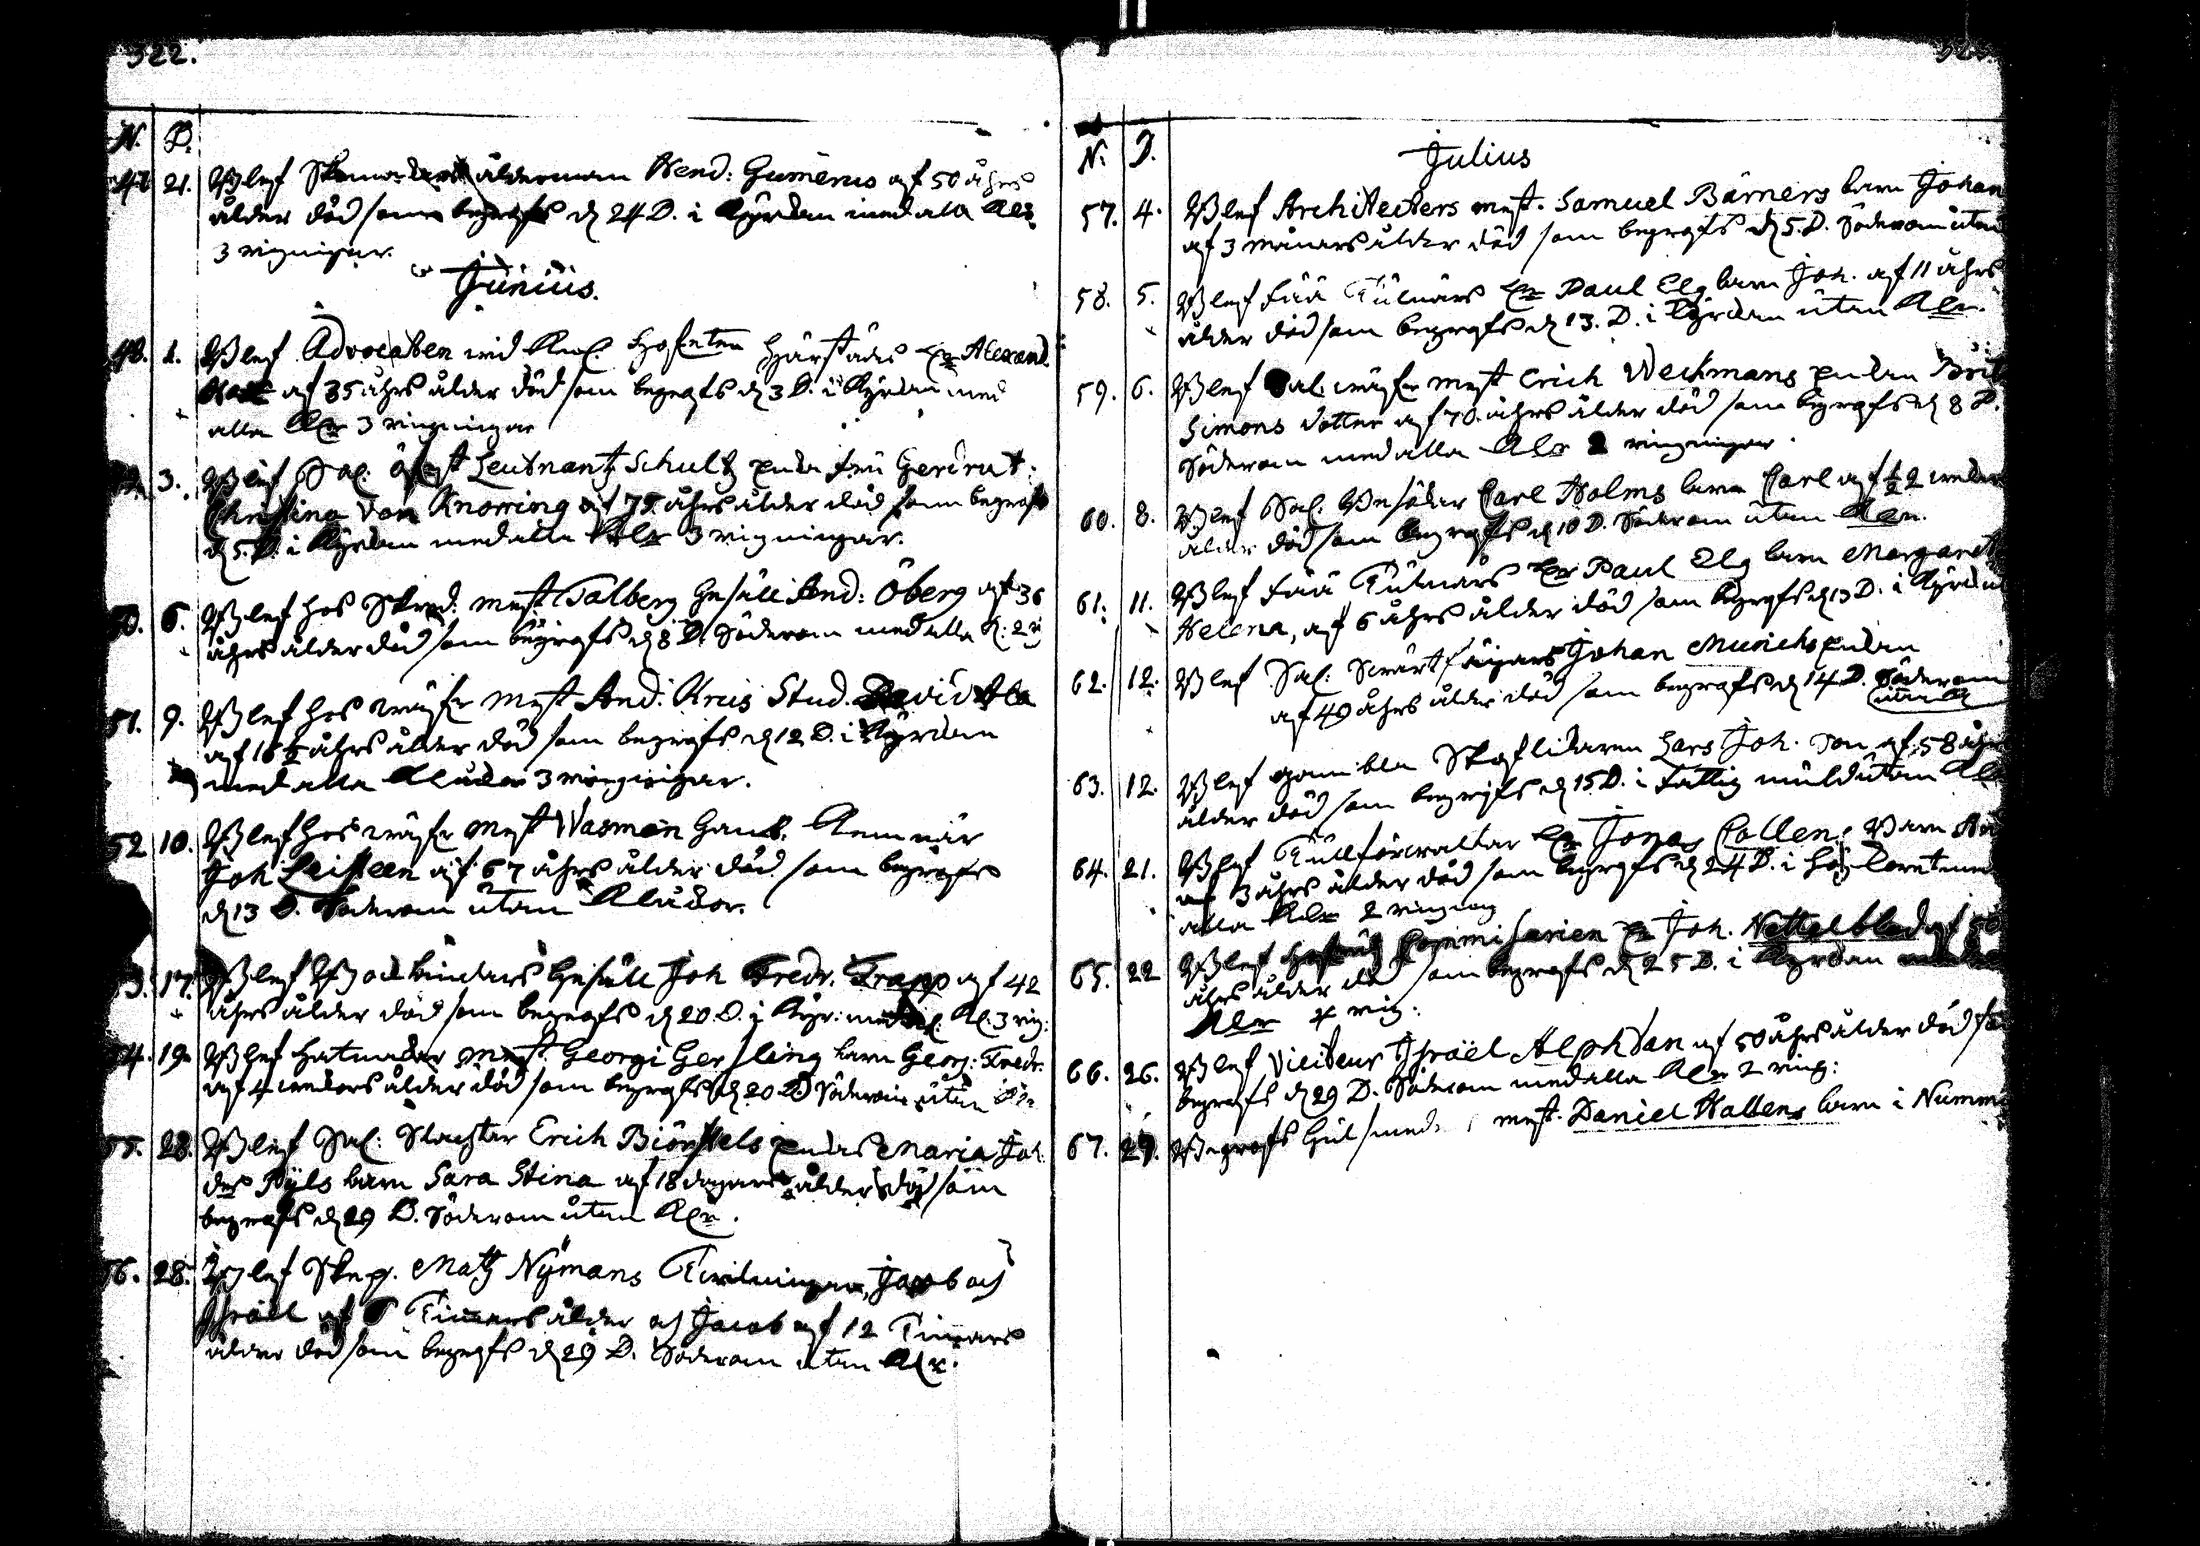 322.
N. D.
47 21. Blef Skomakare ålderman Hend: Gumerus af 50 åhrs
ålder död som begrofs d 24 D. i Kyrckan med alla Klr
3 ringningar.
Junius.
48. 1. Blef Advocaten wid Kongl. Hofretten Härstädes Hr Alexand.
af 35 åhrs ålder död som begrofs d 3 D. i Kyrckan med
alla Klr 3 ringningar
3. Blef Sal: öfwst Leutnantz Schultz enka fru Gerdrut
Christina von Knorring af 75 åhrs ålder död som begrofs
d 5. D. i Kyrckan med alla Klr 3 ringningar.
50. 6. Blef hos Skred: mest Talberg gesäll And: Öberg af 36
åhrs ålder död som begrofs d 8 D. Söderom med alla K: 2 ri
51. 9. Blef hos rådhr mest And. Kreis Stud. David
af 16 ½ åhrs ålder död som begrofs d 12 D. i Kyrckan
med alla Kluckor 3 ringningar.
52 10. Blef hos rådhr mest Wasman
Joh Leisteen af 67 åhrs ålder död som begrofs
d 13 D. Söderom utan Kluckor.
53. 17. Blef Bockbindare Gesäll Joh Fredr. Trapp af 42
åhrs ålder död som begrofs d 20. D. i Kyr: med al. Kl. 3 ring:
54. 19. Blef hatmakar mest. Georgi Gersling barn Georg: Fredr.
af 4 wekors ålder död som begrofs d 20 D Söderom utan Klr
55. 28. Blef Sal: Slachtar Erich Biörstels enkas Maria Joh.
der Pÿls barn Sara Stina af 18 dagars ålder död som
begrofs d 29 D. Söderom utan Klr.
56. 28. Blef Skep. Matz Nÿmans Twillingar, Jacob och
Israel af 6 Timars ålder och Jacob af 12 Timars
ålder död som begrofs d 29 D. Söderom utan Klr.
N: D.
Julius
57. 4. Blef Architecters mest. Samuel Bärners barn Johan
af 3 månars ålder död som begrofs d 5. D. Söderom utan
58. 5. Blef Hr Paul Elg barn Joh. af 11 åhrs
ålder död som begrofs d 13. D. i Kyrckan utan Klr.
59. 6. Blef Sal. rådhr mest Erich Weckmans enkan Brit
Simons dotter af 70 åhrs ålder död som begrofs d 8 D.
Söderom med alla Klr 2 ringningar.
60. 8. Blef Sal. Carl Holms barn Carl af ½ 2 wekor
ålder död som begrofs d 10 D. Söderom utan Klr.
61. 11. Blef Hr Paul Elg barn Margaret
Helena, af 6 åhrs ålder död som begrofs d 13 D. i Kyrckan
62. 12. Blef Sal: Swärtfäjars Johan Munichs enkan
af 49 åhrs ålder död som begrofs d 14 D. Söderom
utan Kl
63. 12. Blef gamble Skoflickaren Lars Joh. Son af 58 åhr
ålder död som begrofs d 15 D. i fattig mull utan Klr
64. 21. Blef Tullförwaltar Hr Jonas Collen: Barn
af 3 åhrs ålder död som begrofs d 24 D. i
alla Klr 2 ringning
65. 22 Blef Commisarien Hr Joh. Nettelblad af 50
åhrs ålder död som begrofs d 25 D. i Kyrckan
Klr 4 ring:
66. 26. Blef Viciteur Israël Alphdan af 50 åhrs ålder död som
begrofs d 29 D. Söderom med alla Klr 2 ring:
67. 29. Begrofs Gulsmed mest. Daniel Hallens barn i Nummi